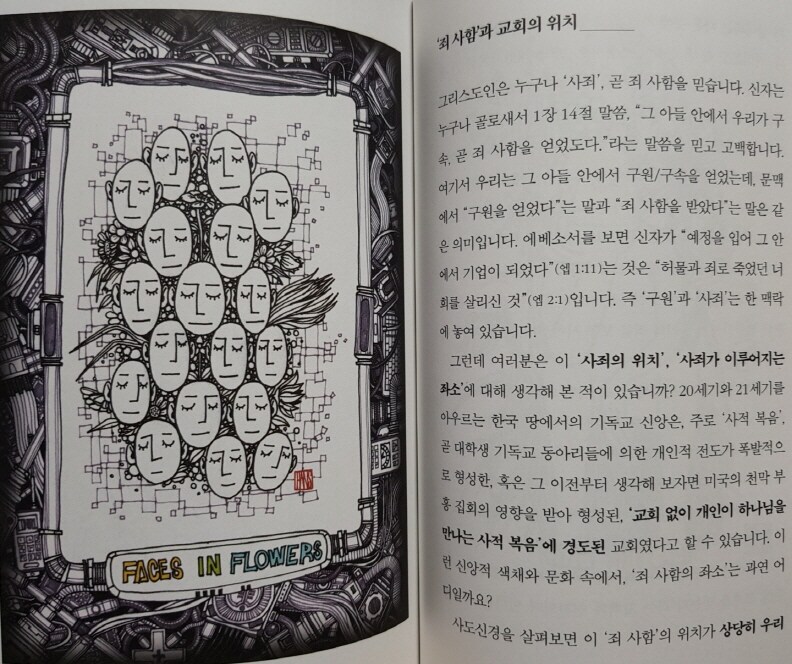 FACES IN FLOWERS
‘죄 사함’과 교회의 위치
그리스도인은 누구나 ‘사죄’, 곧 죄 사함을 믿습니다. 신자는
누구나 골로새서 1장 14절 말씀, “그 아들 안에서 우리가 구
속, 곧 죄 사함을 얻었도다.”라는 말씀을 믿고 고백합니다.
여기서 우리는 그 아들 안에서 구원/구속을 얻었는데, 문맥
에서 “구원을 얻었다”는 말과 “죄 사함을 받았다”는 말은 같
은 의미입니다. 에베소서를 보면 신자가 “예정을 입어 그 안
에서 기업이 되었다”(엡 1:11)는 것은 “허물과 죄로 죽었던 너
회를 살리신 것”(엡 2:1)입니다. 즉 ‘구원’과 ‘사죄’는 한 맥락
에 놓여 있습니다.
그런데 여러분은 이 ‘사죄의 위치’, ‘사죄가 이루어지는
좌소’에 대해 생각해 본 적이 있습니까? 20세기와 21세기를
아우르는 한국 땅에서의 기독교 신앙은, 주로 ‘사적 복음’,
곧 대학생 기독교 동아리들에 의한 개인적 전도가 폭발적으
로 형성한, 혹은 그 이전부터 생각해 보자면 미국의 천막 부
흥 집회의 영향을 받아 형성된, ‘교회 없이 개인이 하나님을
만나는 사적 복음’에 경도된 교회였다고 할 수 있습니다. 이
런 신앙적 색채와 문화 속에서, ‘죄 사함의 좌소’는 과연 어
디일까요?
사도신경을 살펴보면 이 ‘죄 사함’의 위치가 상당히 우리